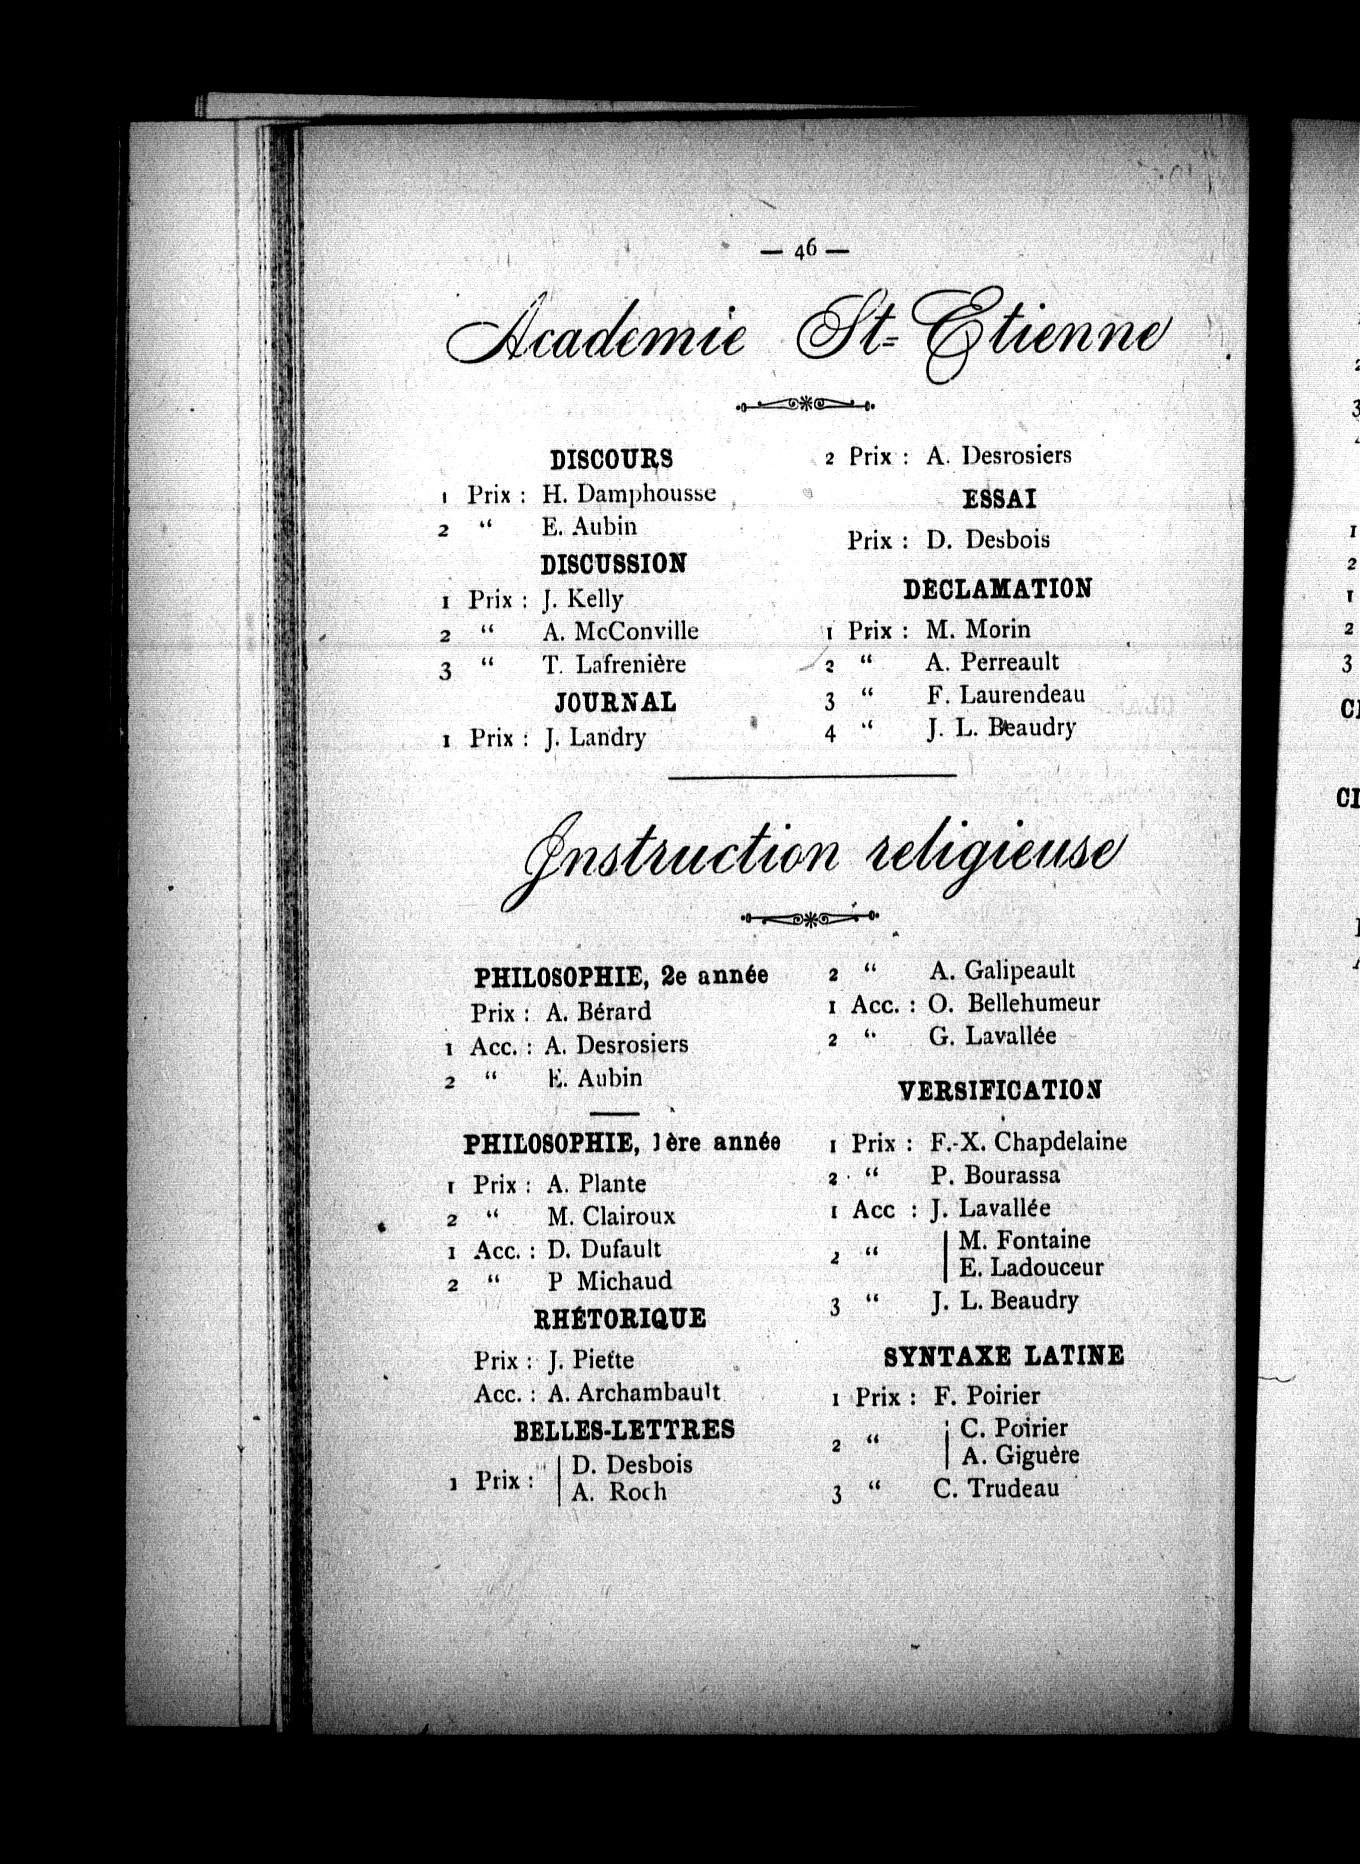 — 46 —
Academie St-Etienne
DISCOURS
1 Prix : H. Damphousse
2 “ E. Aubin
DISCUSSION
1 Prix : J. Kelly
2 “ A. McConville
3 “ T. Lafrenière
JOURNAL
1 Prix : J. Landry
2 Prix : A. Desrosiers
ESSAI
Prix : D. Desbois
DÉCLAMATION
1 Prix : M. Morin
2 “ A. Perreault
3 “ F. Laurendeau
4 “ J. L. Beaudry
Instruction religieuse
PHILOSOPHIE, 2e année
Prix : A. Bérard
1 Acc. : A. Desrosiers
2 “ E. Aubin
PHILOSOPHIE, 1ère année
1 Prix : A. Plante
2 “ M. Clairoux
1 Acc. : D. Dufault
2 “ P Michaud
RHÉTORIQUE
Prix : J. Piette
Acc. : A. Archambault
BELLES-LETTRES
1 Prix : D. Desbois
A. Roch
2 “ A. Galipeault
1 Acc. : O. Bellehumeur
2 “ G. Lavallée
VERSIFICATION
1 Prix : F.-X. Chapdelaine
2 “ P. Bourassa
1 Acc : J. Lavallée
2 “ M. Fontaine
E. Ladouceur
3 “ J. L. Beaudry
SYNTAXE LATINE
1 Prix : F. Poirier
2 “ C. Poirier
A. Giguère
3 “ C. Trudeau